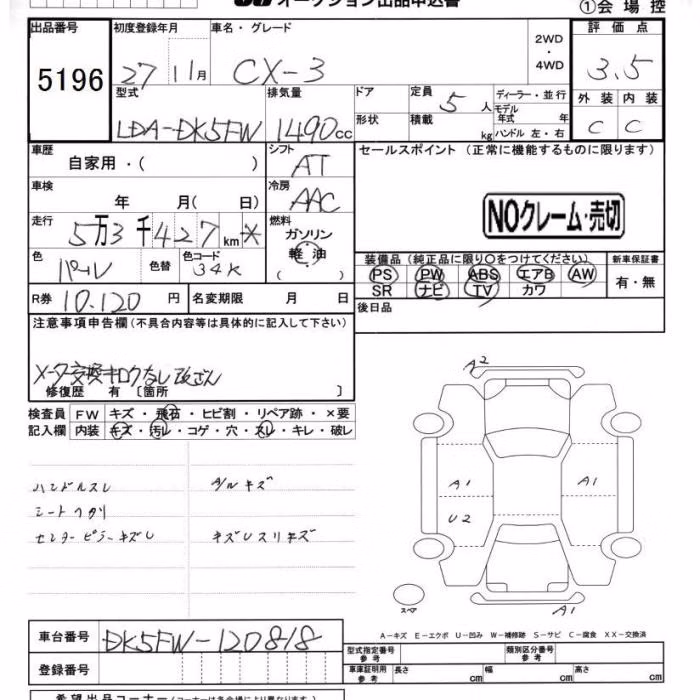 オークション出品申込書
①会場控
出品番号 初度登録年月 車名・グレード 評価点
5196 27 11月 CX-3 2WD・4WD 3.5
外装 内装
C C
型式 排気量 ドア 定員 5人 ディーラー・並行
モデル年式 年
LDA-DK5FW 1490cc 形状 積載 kg ハンドル 左・右
車歴 シフト セールスポイント (正常に機能するものに限ります)
自家用・( ) AT
車検 冷房
年 月( 日) AAC
NOクレーム・売切
走行 燃料
5万3千427km* ガソリン
軽油
( )
色 色替 色コード
パール 34K
装備品(純正品に限り○をつけてください) 新車保証書
PS PW ABS エアB AW 有・無
SR ナビ TV カワ
R券 10.120円 名変期限 月 日 後日品
注意事項申告欄(不具合内容等は具体的に記入して下さい)
メータ交換キロクなし 改ざん
修復歴 有〔箇所 〕
検査員 FW キズ・飛石・ヒビ割・リペア跡・×要
記入欄 内装 キズ・汚レ・コゲ・穴・スレ・キレ・破レ
ハンドルスレ A/Wキズ
シートヘタリ
センターピラーキズU キズUスリキズ
A2
A1 A1
U2
スペア
A1
A-キズ E-エクボ U-凹み W-補修跡 S-サビ C-腐食 XX-交換済
車台番号 DK5FW-120818
登録番号
型式指定番号 参考 類別区分番号 参考
車庫証明用 参考 長さ cm 幅 cm 高さ cm
希望出品コーナー(コーナーは各会場により異なります)